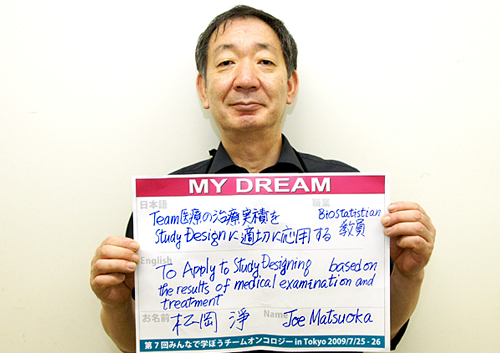 MY DREAM
日本語
職業
Team医療の治療実積を Biostatistian
Study Designに適切に応用する 教員
English
To Apply to Study Designing based on
the results of medical examination and
treatment
お名前 松岡 淨 Name Joe Matsuoka
第7回みんなで学ぼうチームオンコロジー in Tokyo 2009/7/25 - 26